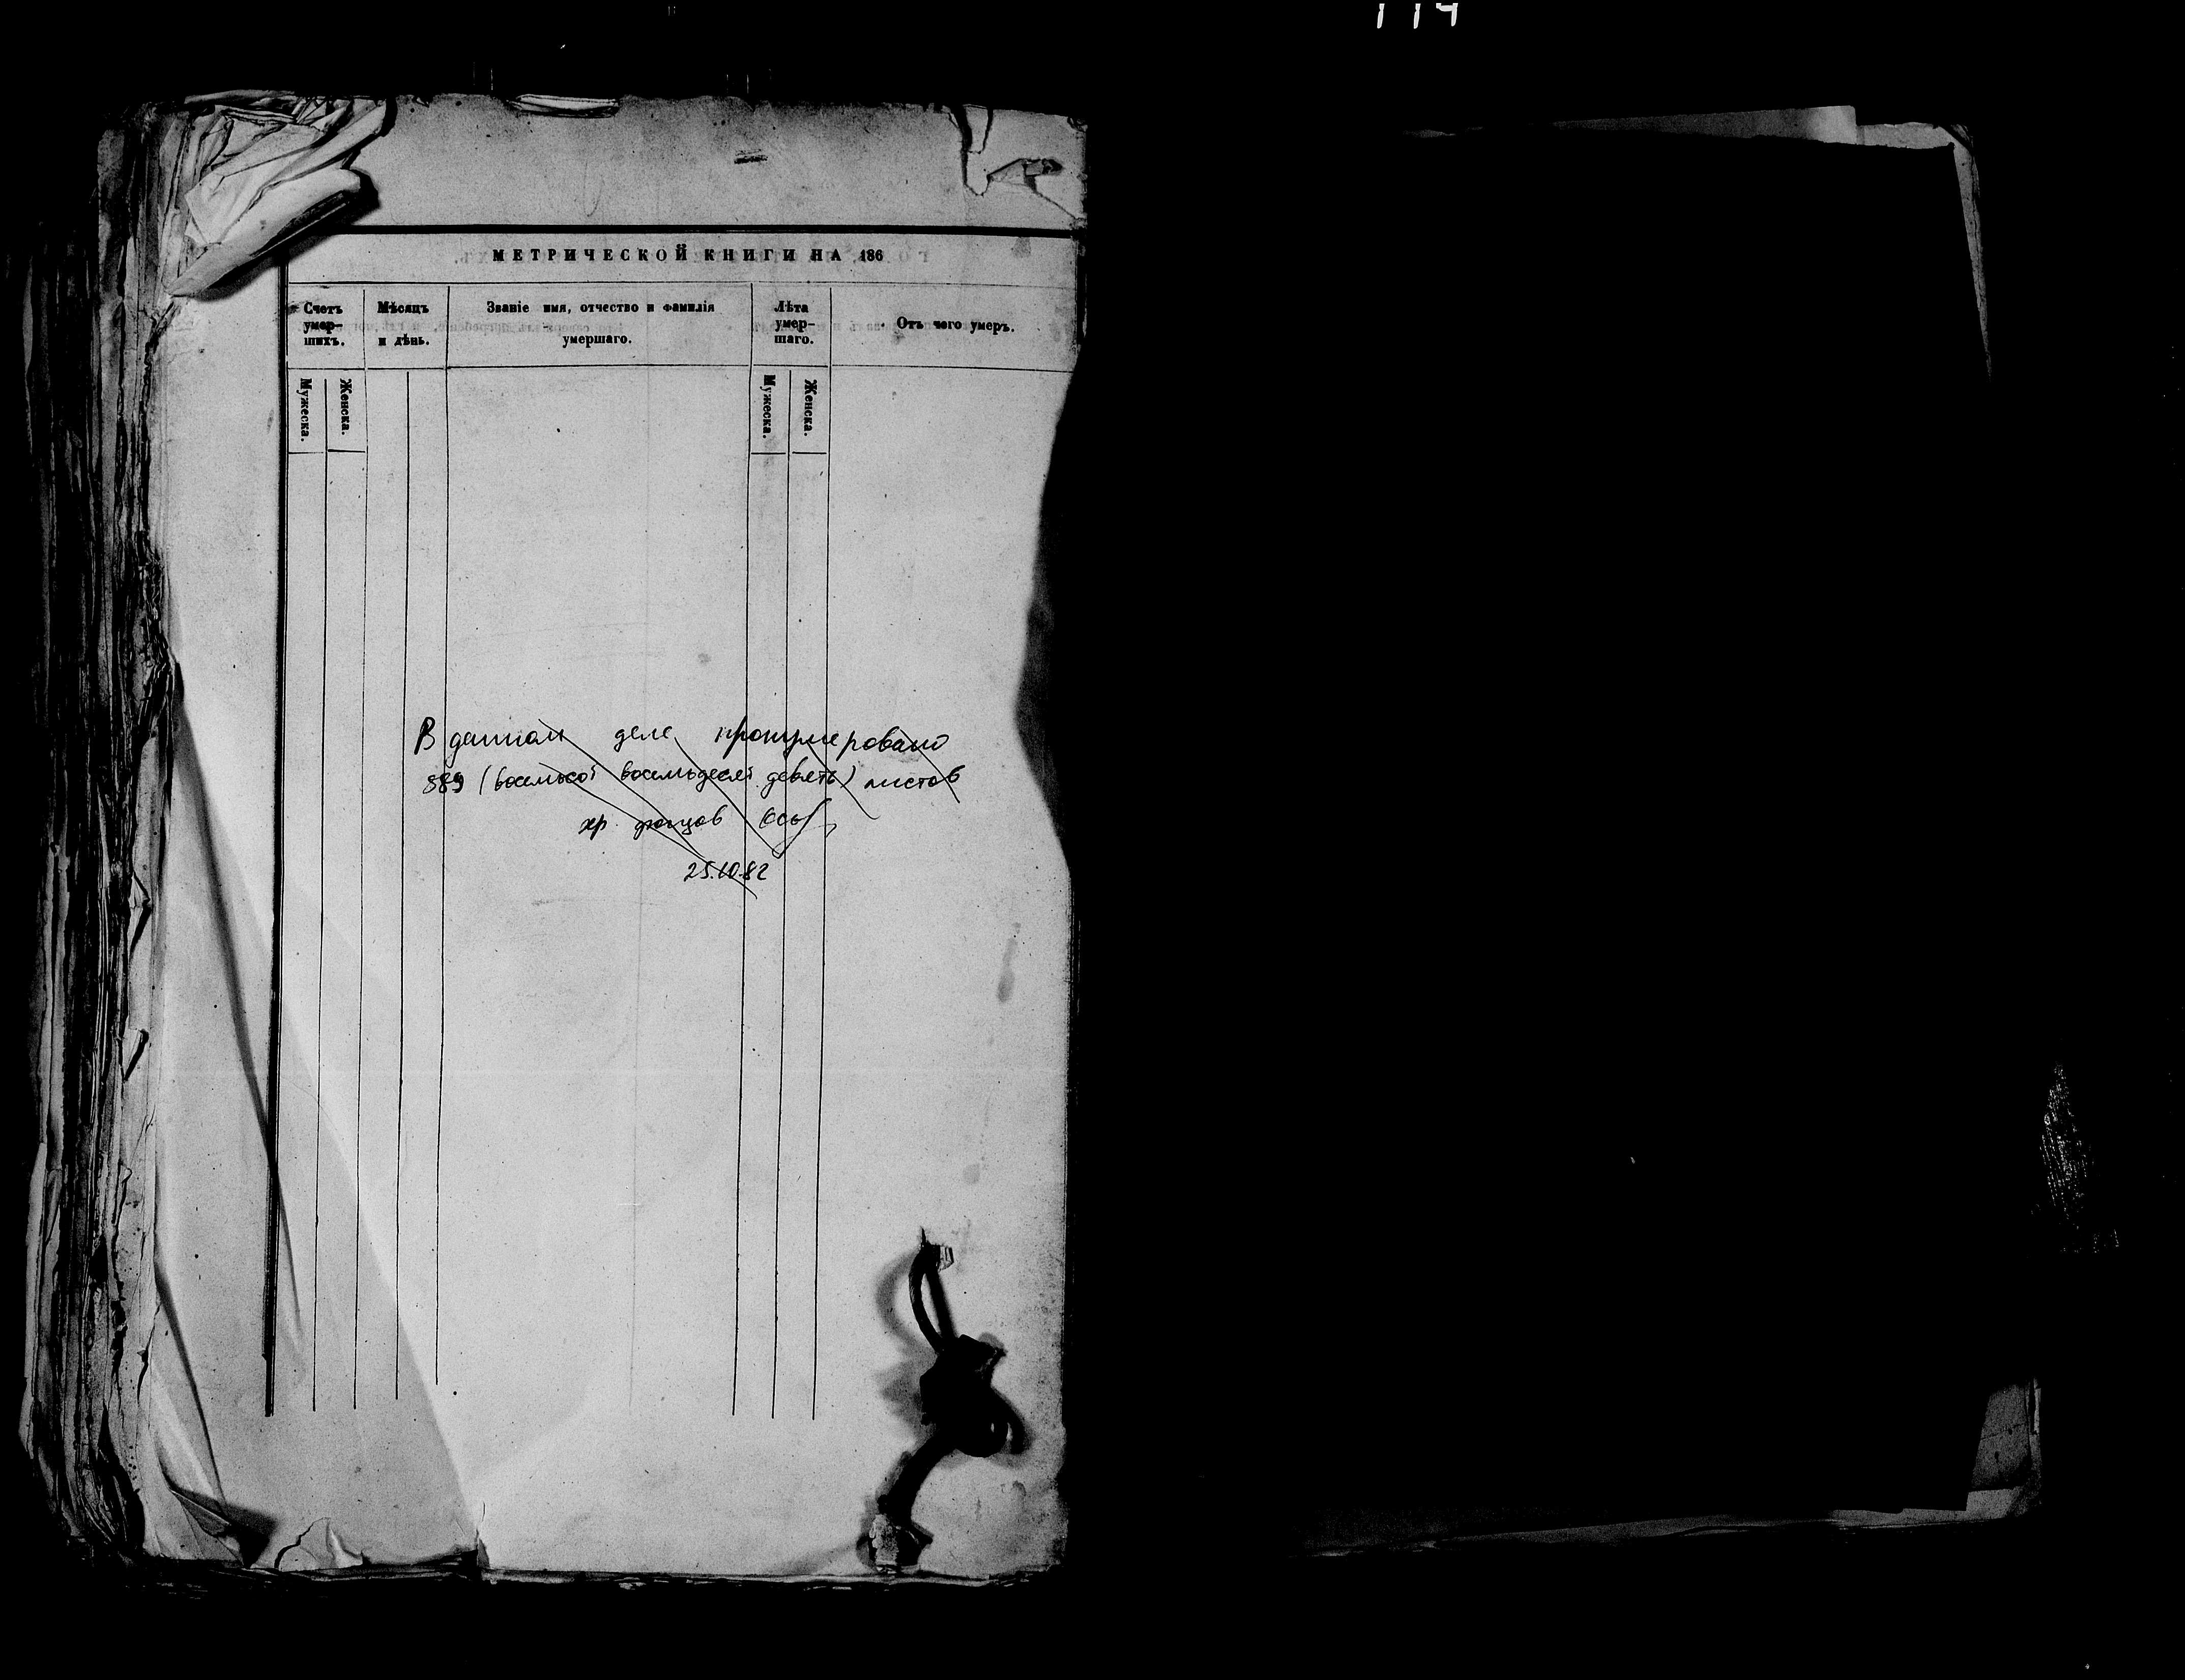 114
МЕТРИЧЕСКОЙ КНИГИ НА 186
Счетъ умер-
шихъ.
Мѣсяцъ
и день.
Званіе имя, отчество и фамилія
умершаго.
Лѣта
умер-
шаго.
Отъ чего умеръ.
Мужеска.
Женска.
Мужеска.
Женска.
В данном деле пронумеровано
889 (восемьсот восемьдесят девять) листов
хр. фондов
25.10.82